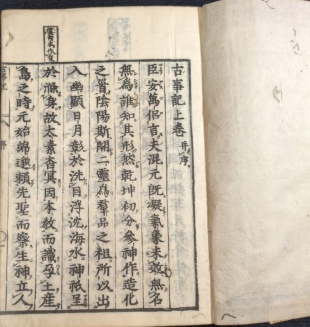 古事記上卷 并序
臣安萬侶言夫混元既凝氣象未效無名
無爲誰知其形然乾坤初分參神作造化
之首陰陽斯開二靈爲群品之祖所以出
入幽顯日月彰於洗目浮沈海水神祇呈
於滌身故太素杳冥因本敎而識孕土產
嶋之時元始綿邈頼先聖而察生神立人